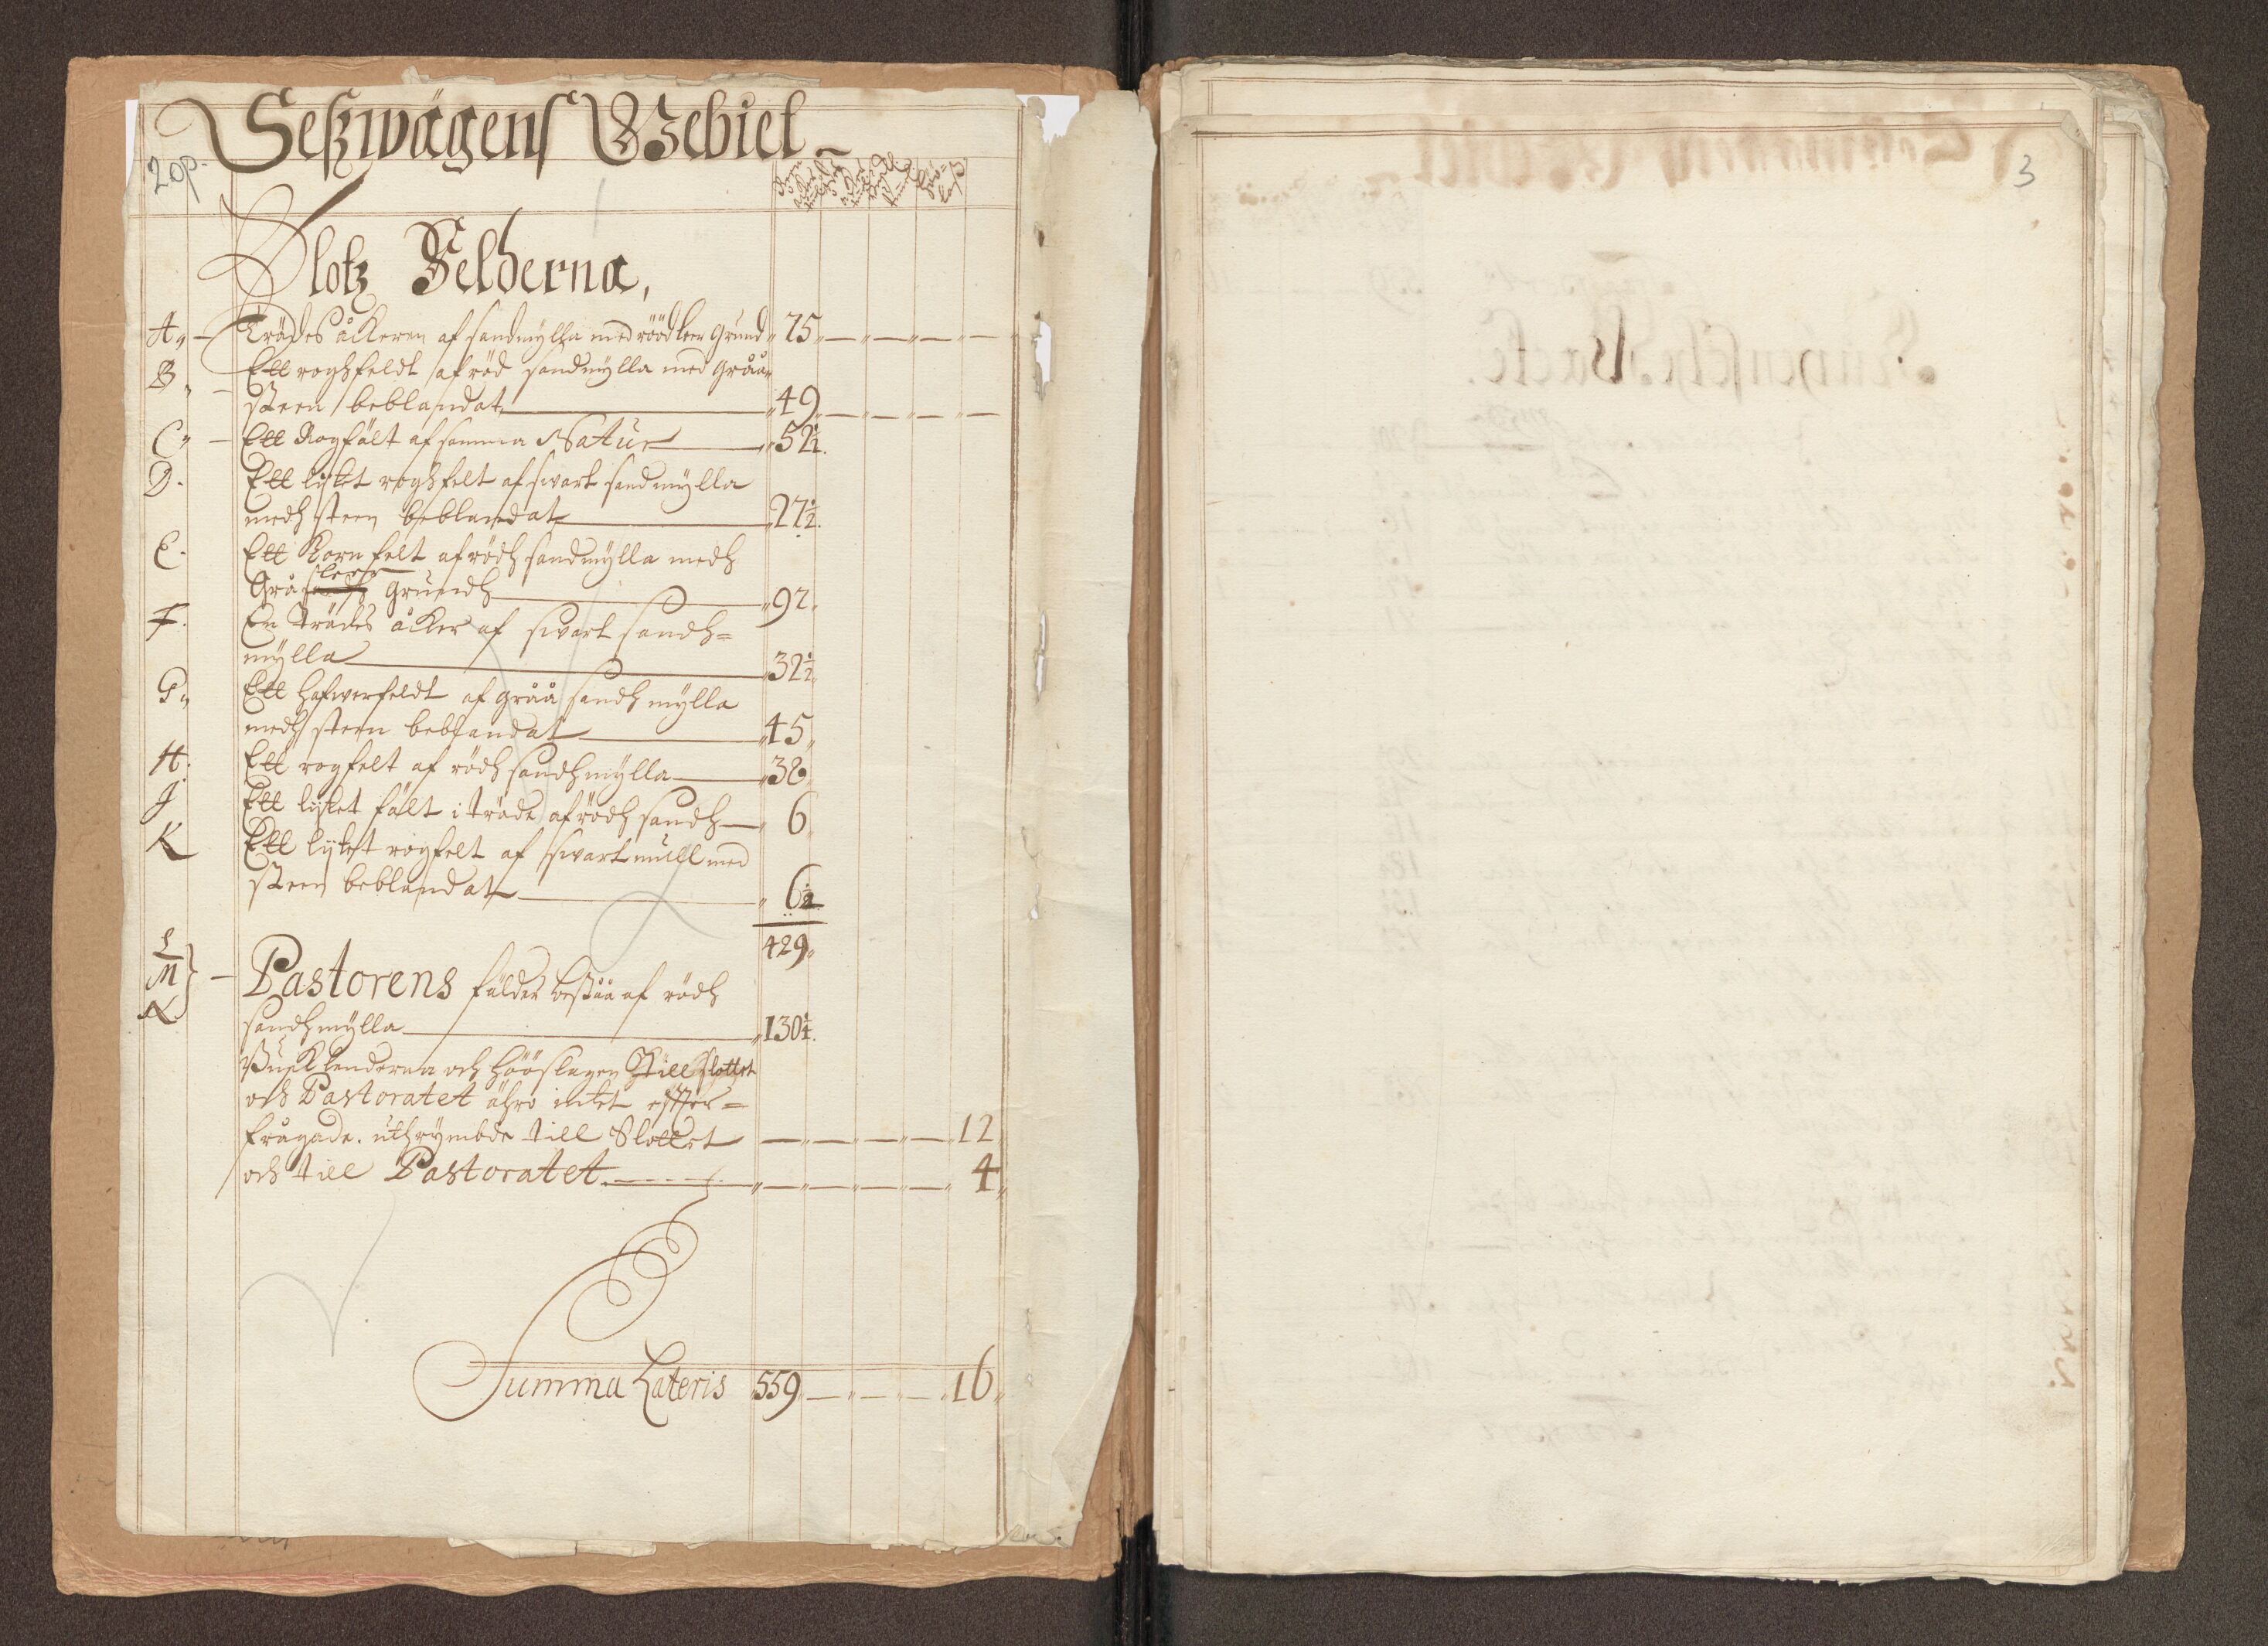 Seßwägens Gebiet
20p.
Slotz Felderna,
A. Trädes åkeren af sandmylla med rööd leer Grund 75
B. Ett roghfeldt af röd sandmylla med gråå
steen beblandat 49
C. Ett Rogfält af samma Natur 52 1/4
D. Ett lijtet roghfelt af swart sandmylla
medh steen beblandat 27 1/2
E. Ett Korn felt af rödh sandmylla medh
Grå leer grundh 97
F. En Trädes åker af swart sandh=
mylla 32 1/2
G. Ett hafwerfeldt af gråå sandh mylla
medh steen beblandat 45
H. Ett rogfelt af rödh sandhmylla 38
J Ett lijtet fält i träde af rödh sandh 6
K Ett lijtet rogfelt af swart mull med
steen beblandat 6 1/2
429
L
M Pastorens fälder bestå af rödh
N
sandhmylla 130 1/4
Busklenderna och Hööslagen till slottet
och Pastoratet ähro intet effter=
frågade. uthrymbde till Slottet 12
och till Pastoratet 4
Summa Lateris 559 16
3